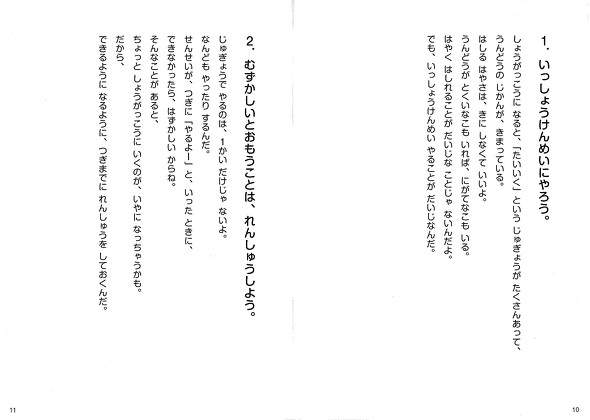 1．いっしょうけんめいにやろう。
しょうがっこうに なると、「たいいく」という じゅぎょうが たくさんあって、
うんどうの じかんが、きまっている。
はしる はやさは、きに しなくて いいよ。
うんどうが とくいなこも いれば、にがてなこも いる。
はやく はしれることが だいじな ことじゃ ないんだよ。
でも、いっしょうけんめい やることが だいじなんだ。
10
2．むずかしいとおもうことは、れんしゅうしよう。
じゅぎょうで やるのは、1かい だけじゃ ないよ。
なんども やったり するんだ。
せんせいが、つぎに「やるよー」と、いった ときに、
できなかったら、はずかしい からね。
そんなことが あると、
ちょっと しょうがっこうに いくのが、いやに なっちゃうかも。
だから、
できるように なるように、つぎまでに れんしゅうを しておくんだ。
11